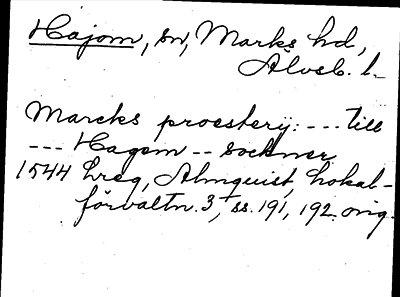 Hajom, sn, Marks hd,
Älvsb. l.
Marcks proestery: --- till
--- Hagem -- sockner
1544 hreg, Almquist, Lokal-
förvaltn. 3, ss. 191, 192. orig.